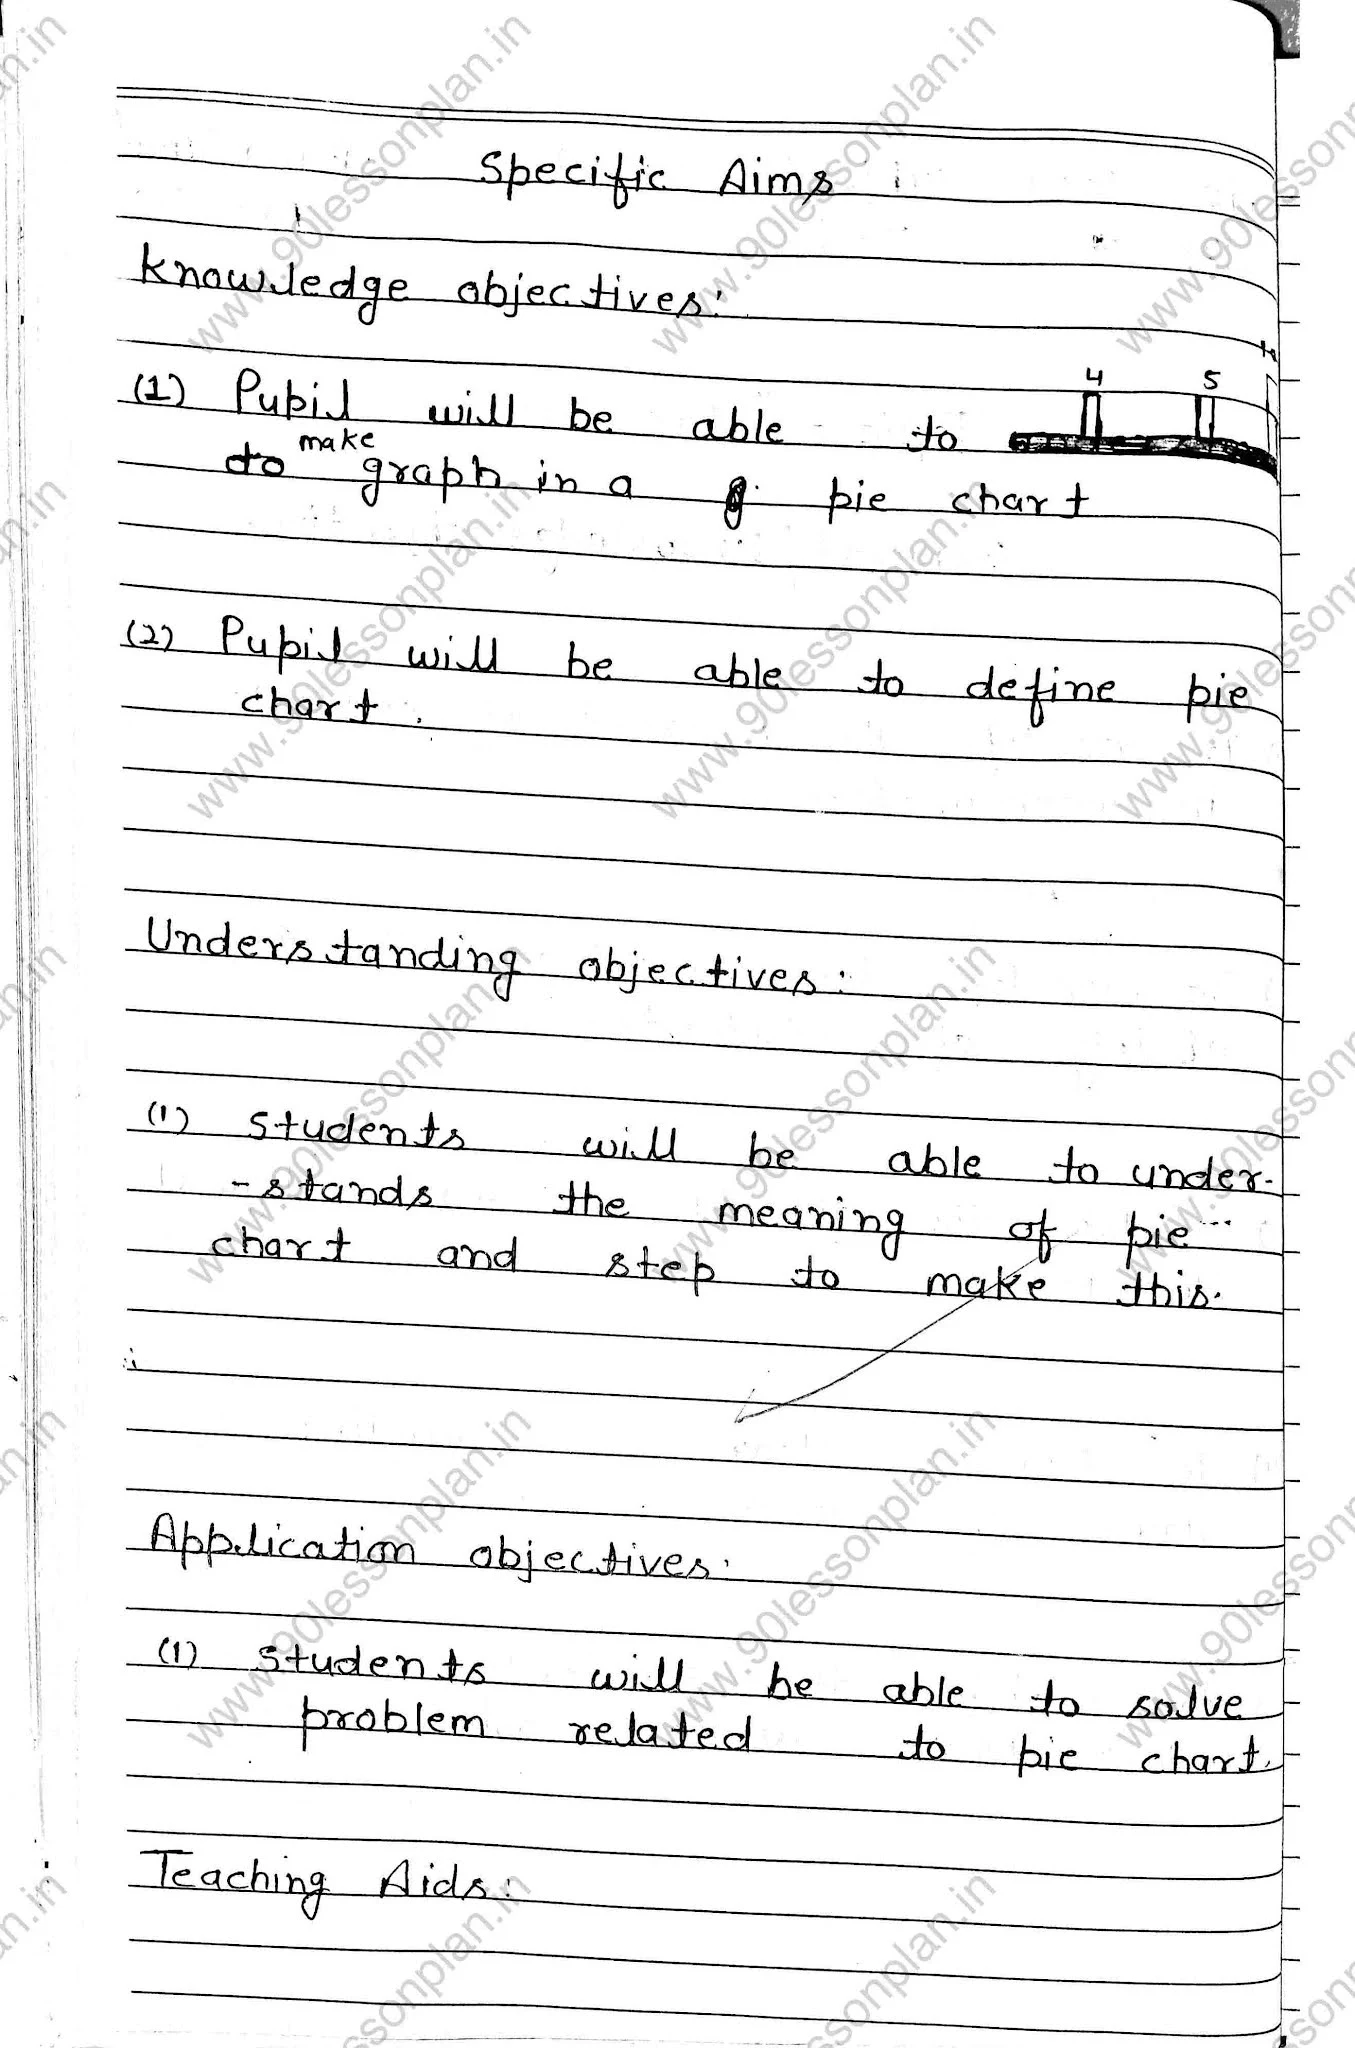 Specific Aims
Knowledge objectives:
4 5
(1) Pupil will be able to
to make graph in a pie chart
(2) Pupil will be able to define pie
chart.
Understanding objectives:
(1) students will be able to under-
-stands the meaning of pie
chart and step to make this.
Application objectives:
(1) students will be able to solve
problem related to pie chart.
Teaching Aids:
www.90lessonplan.in